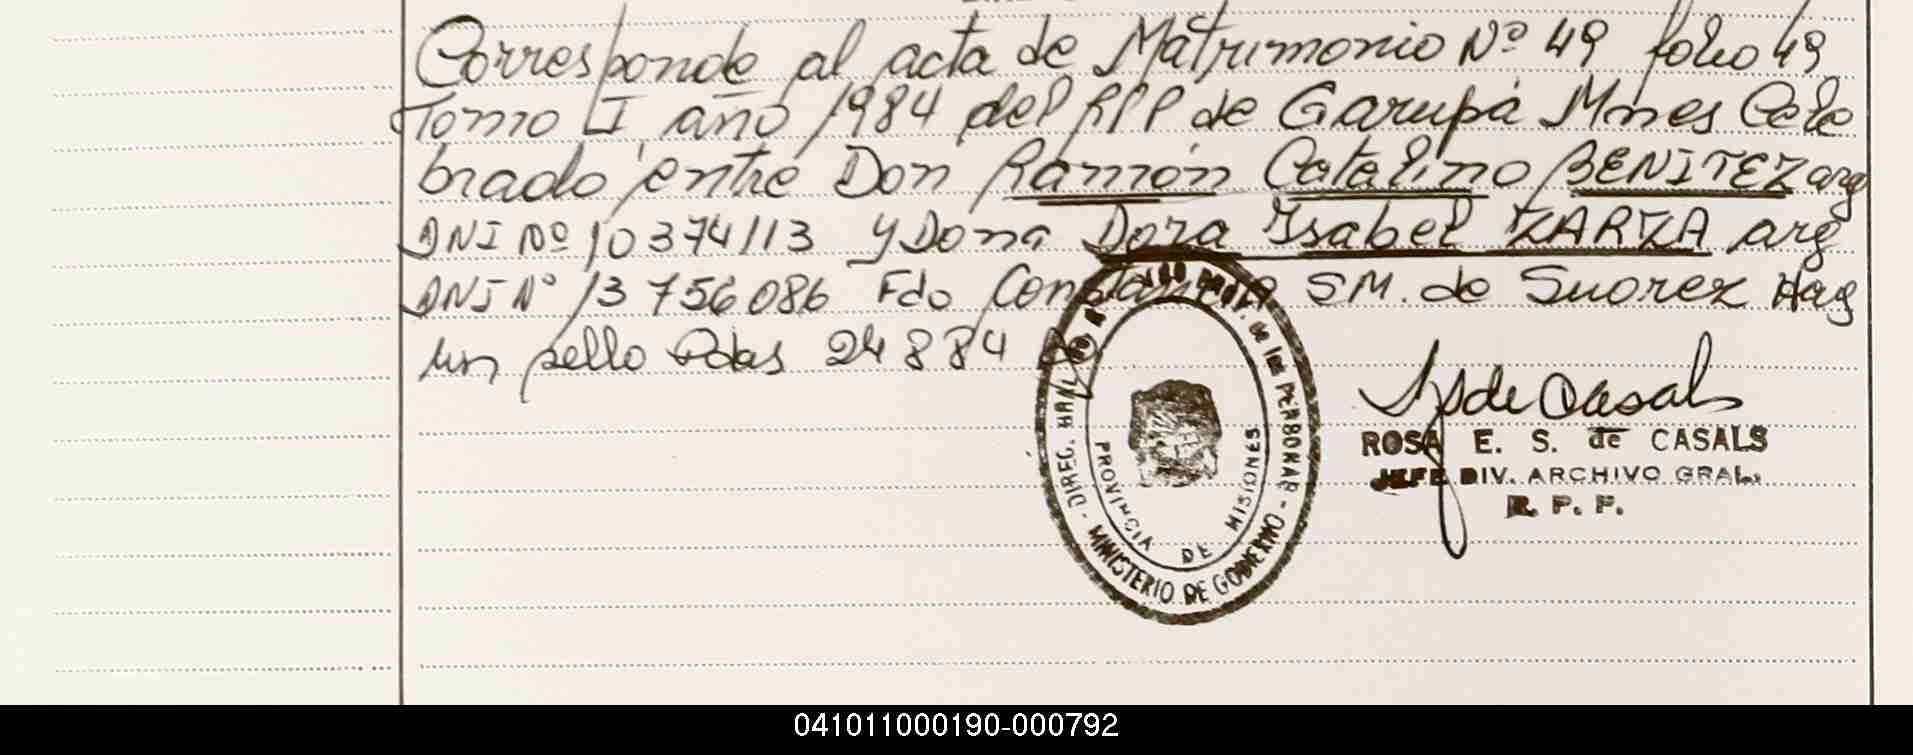 Corresponde al acta de Matrimonio Nº 49 folio 49
Tomo I año 1984 del RPP de Garupá Mnes Cele
brado entre Don Ramón Catalino BENITEZ arg
DNI Nº 10374113 y Dona Dora Ysabel ZARZA arg
DNI Nº 13756086 Fdo Constancia SM. de Suorez Hay
un sello Pdas 24 8 84
DIREC. GRAL DE LAS PERSONAS
MINISTERIO DE GOBIERNO
PROVINCIA DE MISIONES
de Casals
ROSA E. S. de CASALS
JEFE DIV. ARCHIVO GRAL.
R. P. P.
041011000190-000792